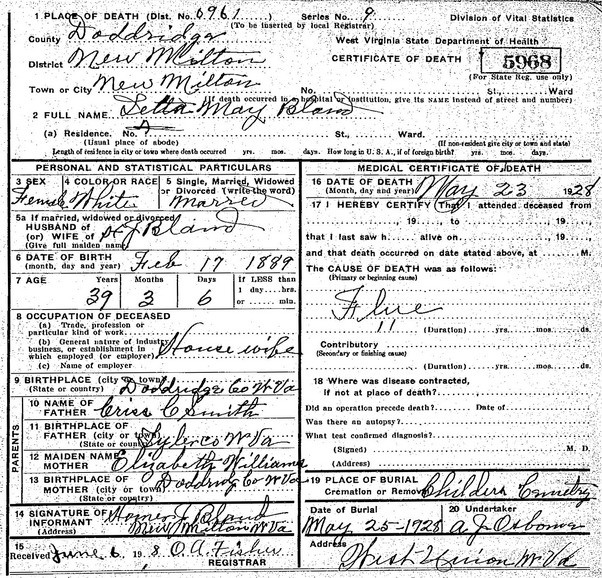 1 PLACE OF DEATH (Dist. No. 6961 Series No. 9 Division of Vital Statistics
(To be inserted by local Registrar)
County Doddridge West Virginia State Department of Health
District New Milton CERTIFICATE OF DEATH 5968
(For State Reg. use only)
Town or City New Milton No. St., Ward.
(If death occurred in a hospital or institution, give its NAME instead of street and number)
2 FULL NAME. Letta May Bland
(a) Residence. No. St., Ward.
(Usual place of abode) (If non-resident give city or town and state)
Length of residence in city or town where death occurred yrs. mos. days. How long in U. S. A., if of foreign birth? yrs. mos. days.
PERSONAL AND STATISTICAL PARTICULARS
3 SEX 4 COLOR OR RACE 5 Single, Married, Widowed
or Divorced (write the word)
Female White Married
5a If married, widowed or divorced
HUSBAND OF
(or) WIFE OF Bland
(Give full maiden name)
6 DATE OF BIRTH
(month, day and year) Feb 17 1889
7 AGE Years Months Days If LESS than
1 day....hrs.
or ...... min.
39 3 6
8 OCCUPATION OF DECEASED
(a) Trade, profession or
particular kind of work
(b) General nature of industry,
business, or establishment in
which employed (or employer) House wife
(c) Name of employer
9 BIRTHPLACE (city or town)
(State or country) Doddridge Co W Va
PARENTS
10 NAME OF
FATHER Criss C Smith
11 BIRTHPLACE OF
FATHER (city or town)
(State or country) Tyler co W Va
12 MAIDEN NAME
MOTHER Elizabeth Williams
13 BIRTHPLACE OF
MOTHER (city or town) Doddridge Co W Va
(State or country)
14 SIGNATURE OF
INFORMANT Homer J Bland
(Address) New Milton W Va
15
Received June 6 1928 O. A. Fisher
REGISTRAR
MEDICAL CERTIFICATE OF DEATH
16 DATE OF DEATH
(Month, day and year) May 23 1928
17 I HEREBY CERTIFY (That I attended deceased from
............, 19......, to ............, 19.....,
that I last saw h...... alive on............, 19.....,
and that death occurred on date stated above, at ........M.
The CAUSE OF DEATH was as follows:
(Primary or beginning cause)
Flue
11
(Duration) yrs. mos. ds.
Contributory
(Secondary or finishing cause)
(Duration) yrs. mos. ds.
18 Where was disease contracted,
if not at place of death?
Did an operation precede death? Date of
Was there an autopsy?
What test confirmed diagnosis?
(Signed) M. D.
(Address)
19 PLACE OF BURIAL
Cremation or Removal Childers Cemetry
Date of Burial 20 Undertaker
May 25-1928 A. J. Osborne
Address
West Union W Va